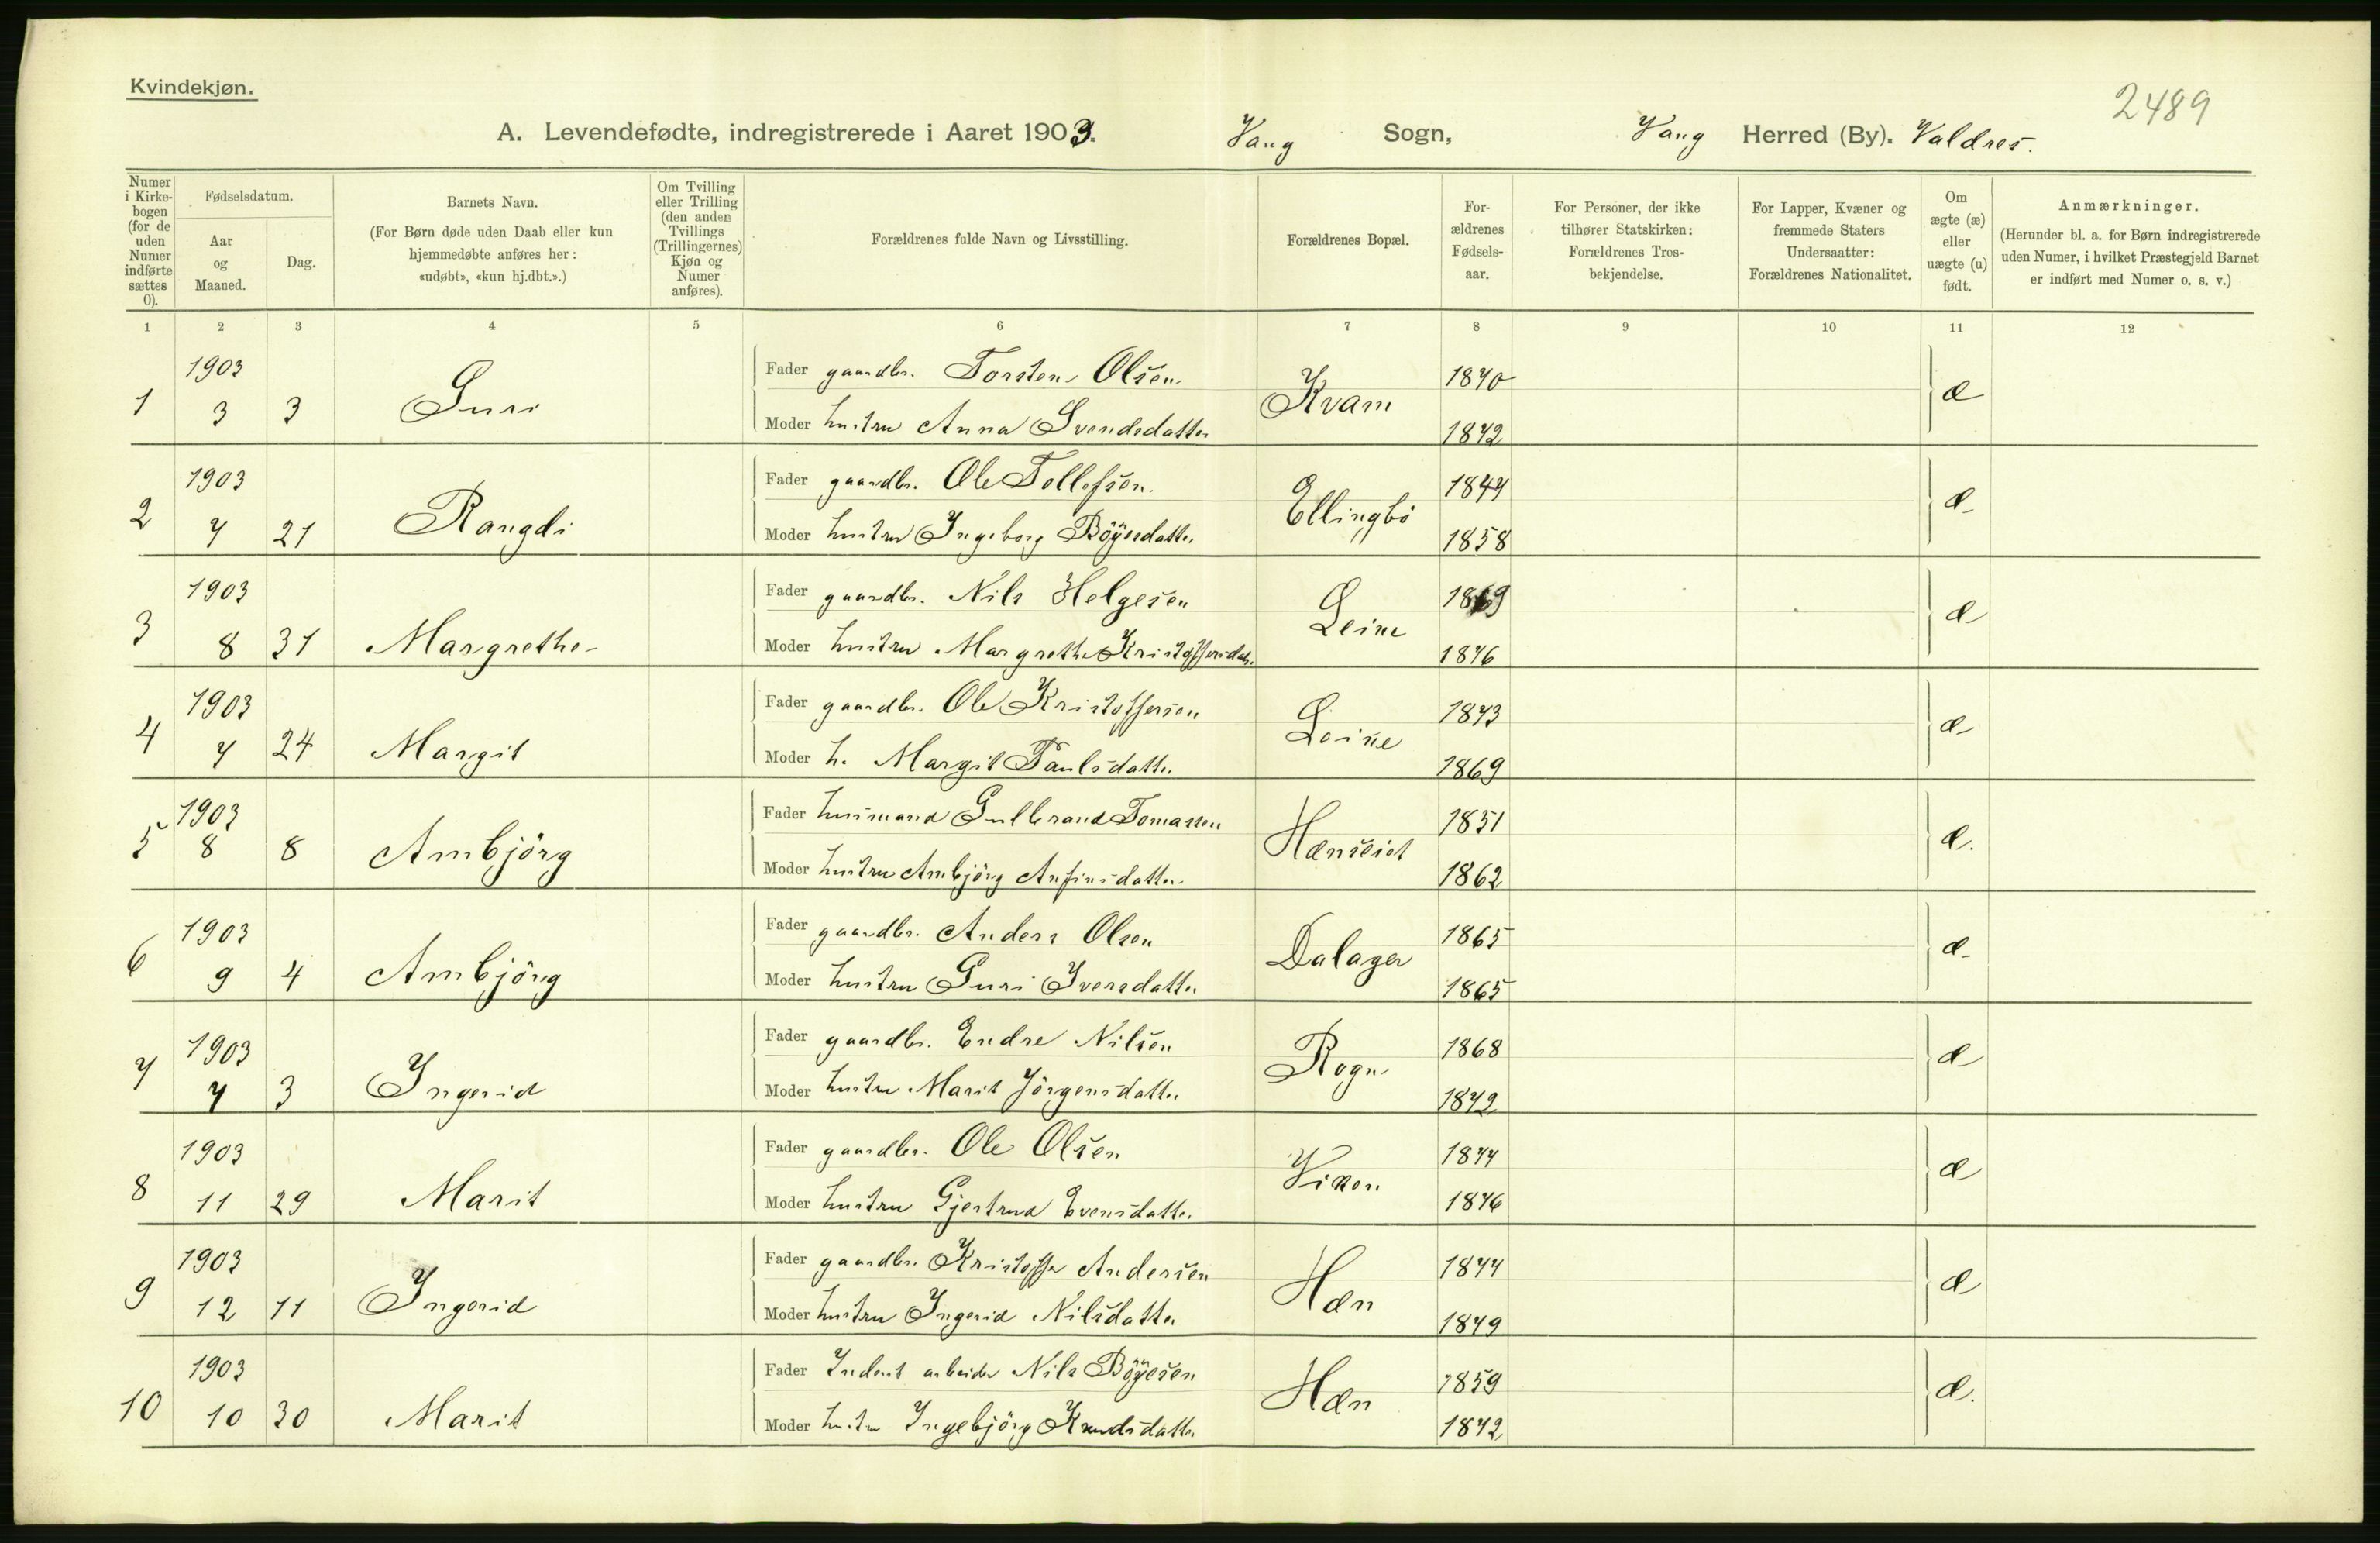 Kvindekjøn.
2489
A. Levendefødte, indregistrerede i Aaret 1903. Vang Sogn, Vang Herred (By). Valdres.
Numer i Kirkebogen (for de uden Numer indførte sættes 0).
Fødselsdatum.
Aar og Maaned.
Dag.
Barnets Navn.
(For Børn døde uden Daab eller kun hjemmedøbte anføres her: «udøbt», «kun hj.dbt.».)
Om Tvilling eller Trilling (den anden Tvillings (Trillingernes) Kjøn og Numer anføres).
Forældrenes fulde Navn og Livsstilling.
Forældrenes Bopæl.
Forældrenes Fødselsaar.
For Personer, der ikke tilhører Statskirken: Forældrenes Trosbekjendelse.
For Lapper, Kvæner og fremmede Staters Undersaatter: Forældrenes Nationalitet.
Om ægte (æ) eller uægte (u) født.
Anmærkninger.
(Herunder bl. a. for Børn indregistrerede uden Numer, i hvilket Præstegjeld Barnet er indført med Numer o. s. v.)
1 2 3 4 5 6 7 8 9 10 11 12
1903 Fader gaardbr. Torsten Olsen 1870
1 3 3 Guri Kvam æ
Moder hustru Anna Svendsdatter 1872
1903 Fader gaardbr. Ole Tollefsen 1844
2 7 21 Rangdi Ellingbö æ
Moder hustru Ingeborg Böÿesdatter 1858
1903 Fader gaardbr. Nils Helgesen 1869
3 8 31 Margrethe Leine æ
Moder hustru Margrethe Kristoffersdatr. 1876
1903 Fader gaardbr. Ole Kristoffersen 1873
4 7 24 Margit Leine æ
Moder h. Margit Paulsdatter 1869
1903 Fader husmand Gulbrand Tomassen 1851
5 8 8 Ambjörg Hænseid æ.
Moder hustru Ambjörg Anfinsdatter 1862
1903 Fader gaardbr. Anders Olsen 1865
6 9 4 Ambjörg Dalager æ
Moder hustru Guri Iversdatter 1865
1903 Fader gaardbr. Endre Nilsen 1868
7 7 3 Ingerid Rogn æ
Moder hustru Marit Jörgensdatter 1872
1903 Fader gaardbr. Ole Olsen 1877
8 11 29 Marit Viken æ
Moder hustru Gjertrud Evensdatter 1876
1903 Fader gaardbr. Kristoffer Andersen 1877
9 12 11 Ingerid Hæn æ
Moder hustru Ingerid Nilsdatter 1879
1903 Fader arbeider Nils Böÿesen 1859
10 10 30 Marit Hæn æ.
Moder hustru Ingebjörg Knudsdatter 1872